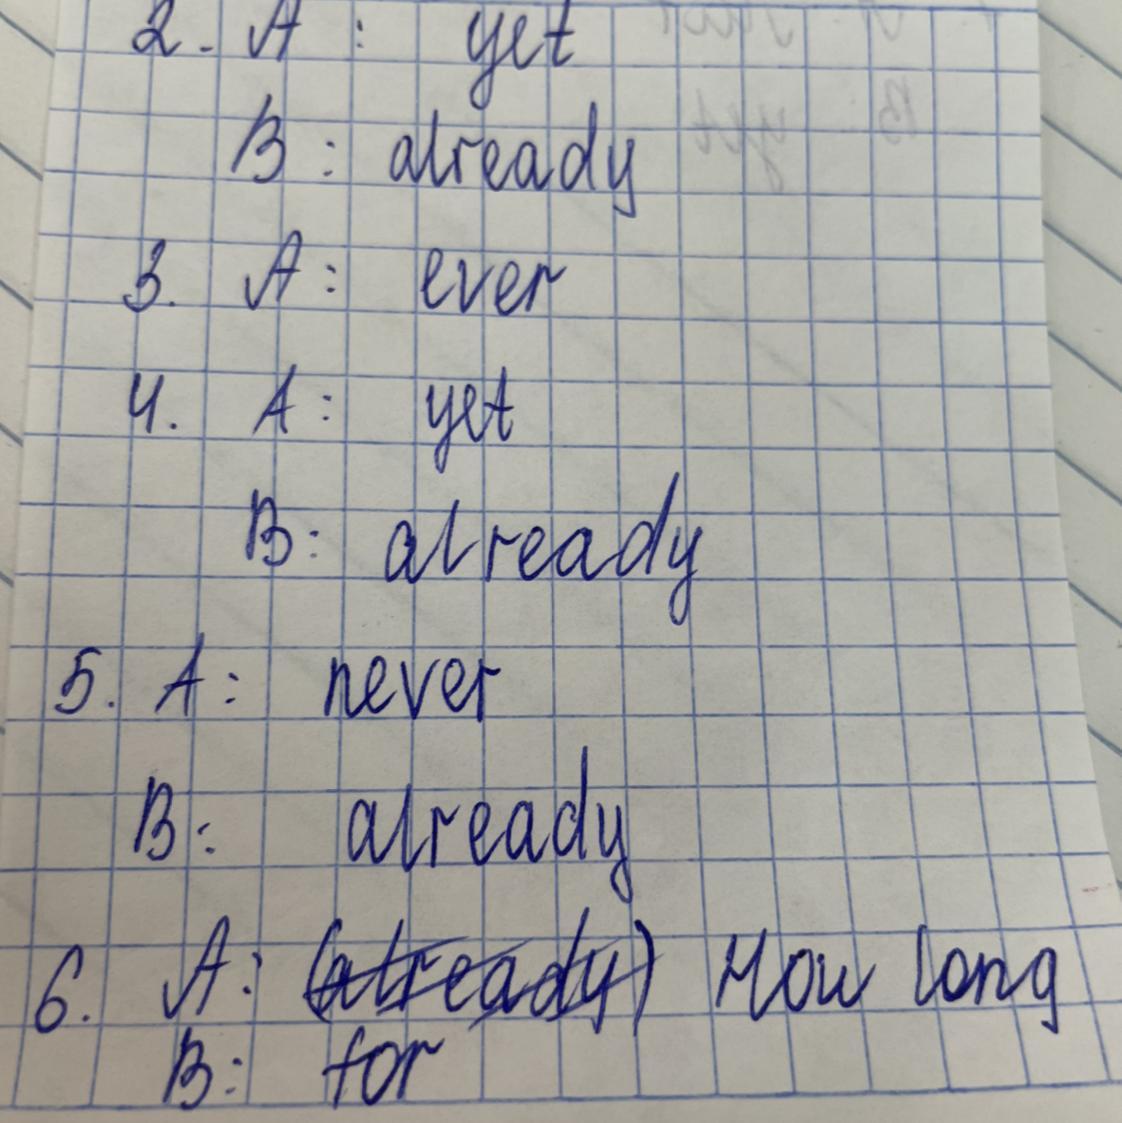 2. A: yet
B: already
3. A: ever
4. A: yet
B: already
5. A: never
B: already
6. A: (already) How long
B: for